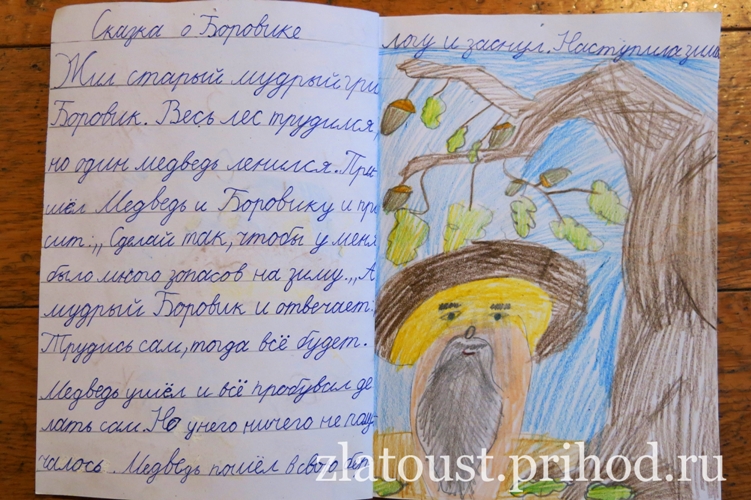 Сказка о Боровике
Жил старый мудрый гри
Боровик. Весь лес трудился,
но один медведь ленился. При-
шёл Медведь и Боровику и про
сит: „Сделай так, чтобы у меня
было много запасов на зиму.„ А
мудрый Боровик и отвечает:
Трудись сам, тогда всё будет.
Медведь ушёл и всё пробывал де
лать сам. Но у него ничего не полу-
чалось. Медведь пошёл в свою бер
логу и заснул. Наступила зима
zlatoust.prihod.ru